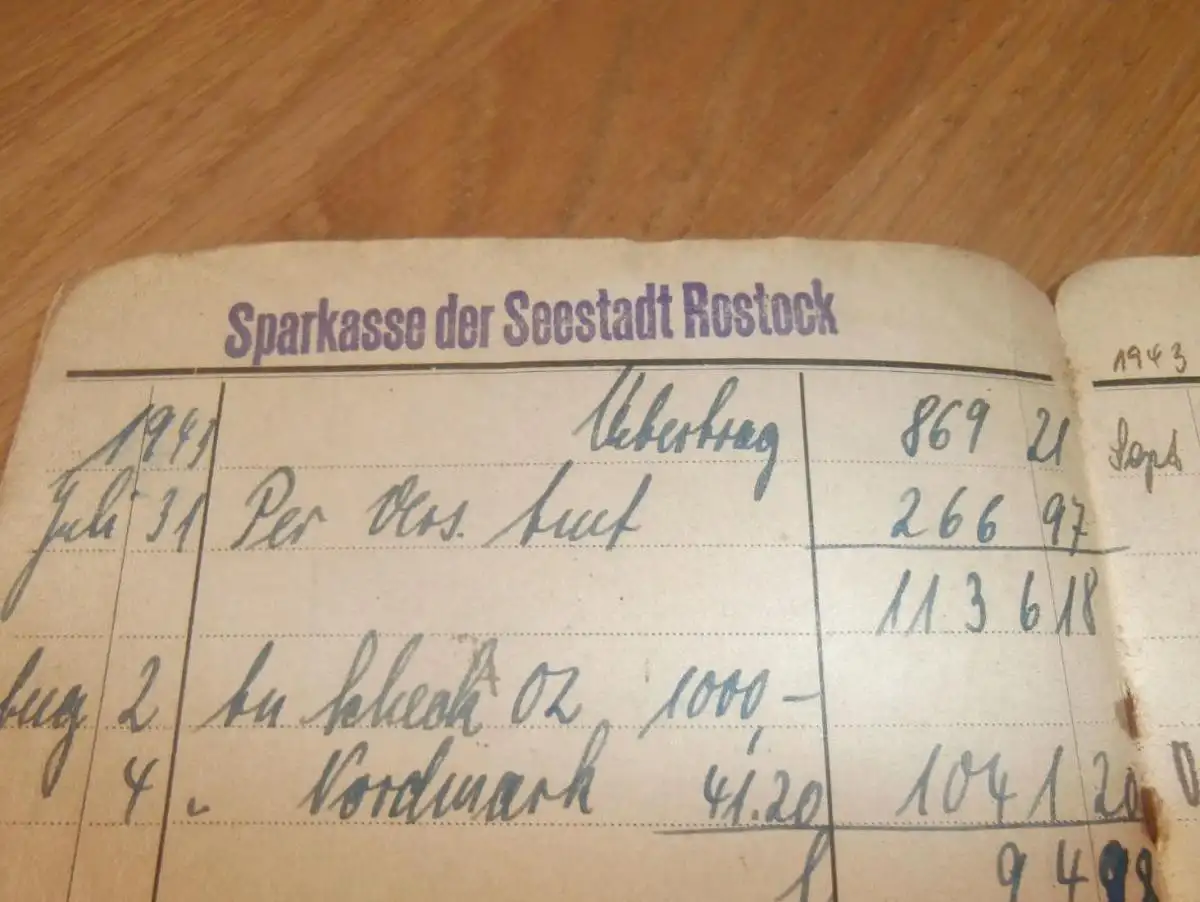 Sparkasse der Seestadt Rostock
1943 Uebertrag 869 21
Juli 31 Per 266 97
113 6 18
Aug 2 An Scheck OZ 1000,-
4 " Nordmark 41.20 104 1 20
9 4 98
1943
Sept